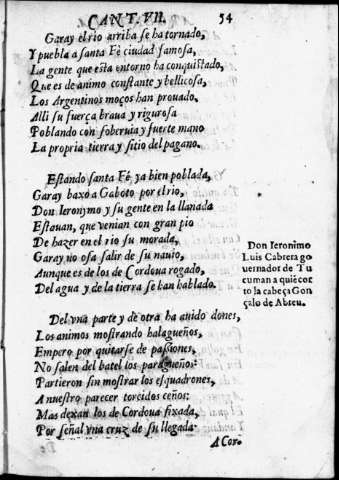 CANT. VII. 54
Garay el rio arriba se ha tornado,
Y puebla a santa Fè ciudad famosa,
La gente que esta entorno ha conquistado,
Que es de animo constante y bellicosa,
Los Argentinos moços han prouado,
Alli su fuerça braua y rigurosa
Poblando con soberuia y fuerte mano
La propria tierra y sitio del pagano.
Estando santa Fé, ya bien poblada,
Garay baxò a Gaboto por el rio,
Don Ieronymo y su gente en la llanada
Estauan, que venian con gran pio
De hazer en el rio su morada,
Garay no osa salir de su nauio,
Aunque es de los de Cordoua rogado,
Del agua y de la tierra se han hablado.
Don Ieronimo
Luis Cabrera go
uernador de Tu
cuman a quiē cor
to la cabeça Gon
çalo de Abreu.
Del vna parte y de otra ha auido dones,
Los animos mostrando halagueños,
Empero por quitarse de passiones,
No salen del batel los paragueños:
Partieron sin mostrar los esquadrones,
A nuestro parecer torcidos ceños:
Mas dexan los de Cordoua fixada,
Por señal vna cruz de su llegada.
A Cor.